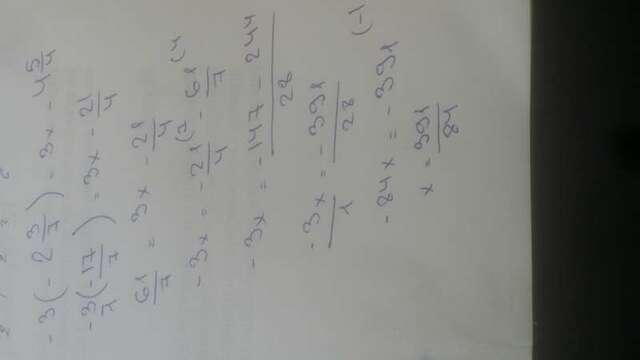 -3(-2 3/7) = 3x - 4 5/4
-3/1(-17/7) = 3x - 21/4
61/7 = 3x - 21/4
-3x = -21/4 (7 - 61/7 (4
-3x = -147 - 244/28
-3x/1 = -391/28
-84x = -391 (-1
x = 391/84